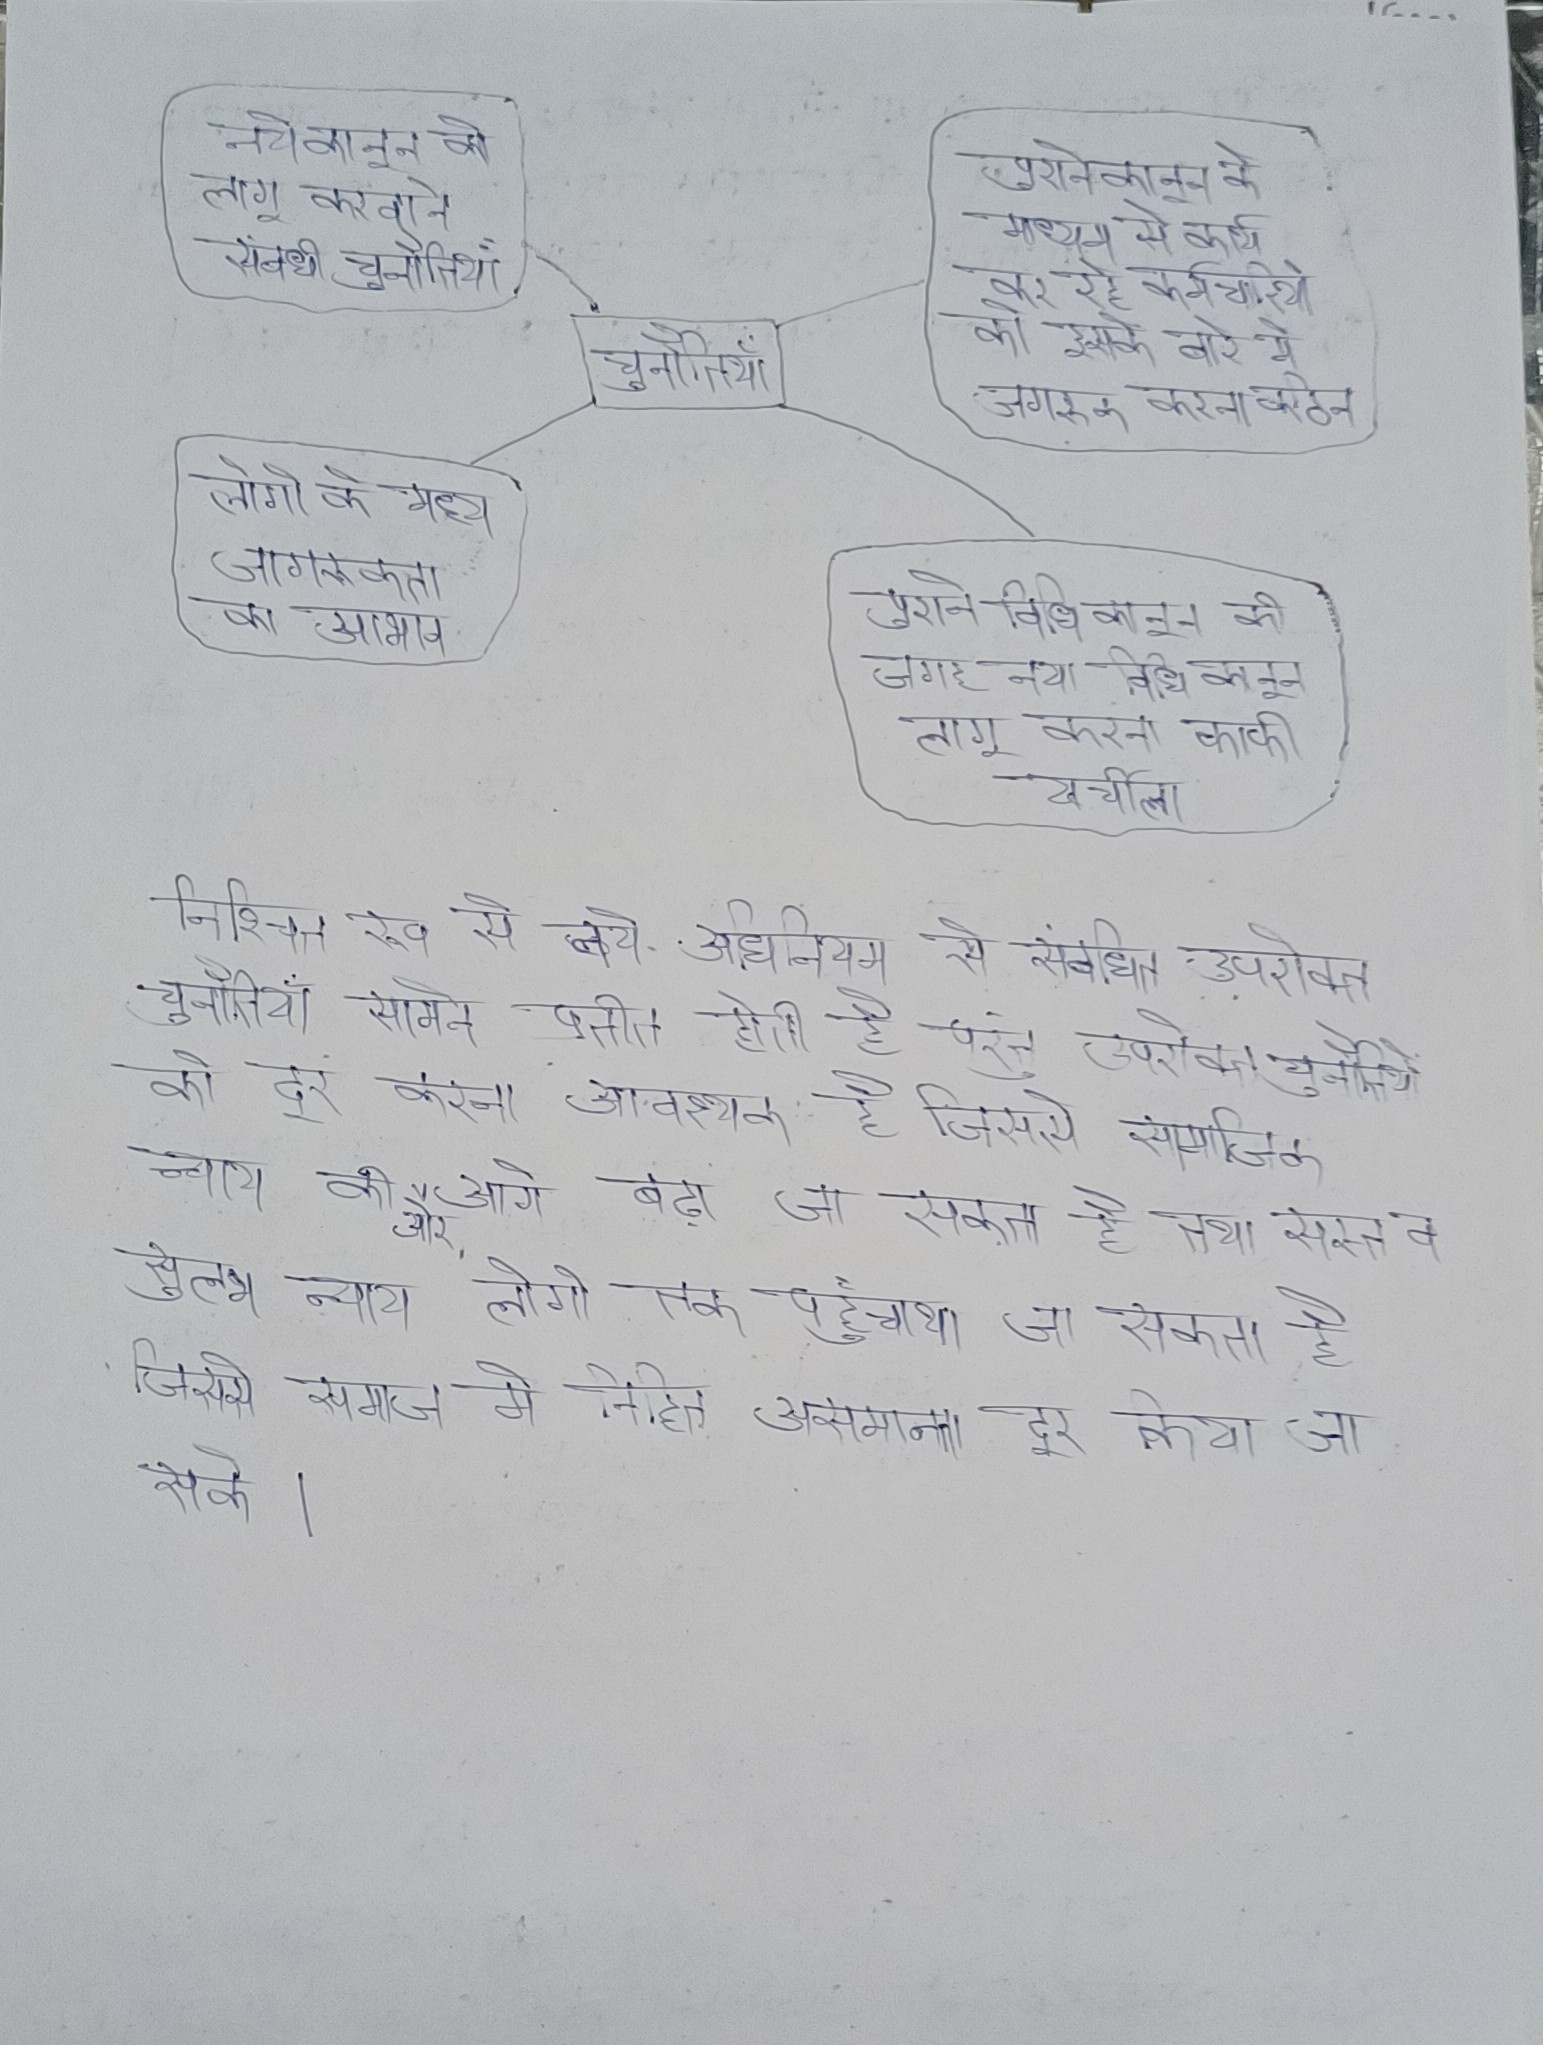 नये कानून को
लागू करवाने
संबधी चुनौतियाँ
पुराने कानून के
माध्यम से कार्य
कर रहे कर्मचारियो
को इसके बारे मे
जगरूक करना कठिन
चुनौतियाँ
लोगो के मध्य
जागरूकता
का आभाव
पुराने विधि कानून की
जगह नया विधि कानून
लागू करना काफी
खर्चीला
निश्चित रूप से नये अधिनियम से संबंधित उपरोक्त
चुनौतियाँ सामने प्रतीत होती है परंतु उपरोक्त चुनौतियों
को दूर करना आवश्यक है जिससे सामाजिक
न्याय की और आगे बढ़ा जा सकता है तथा सस्ता व
सुलभ न्याय लोगो तक पहुँचाया जा सकता है
जिससे समाज मे निहित असमानता दूर किया जा
सके ।